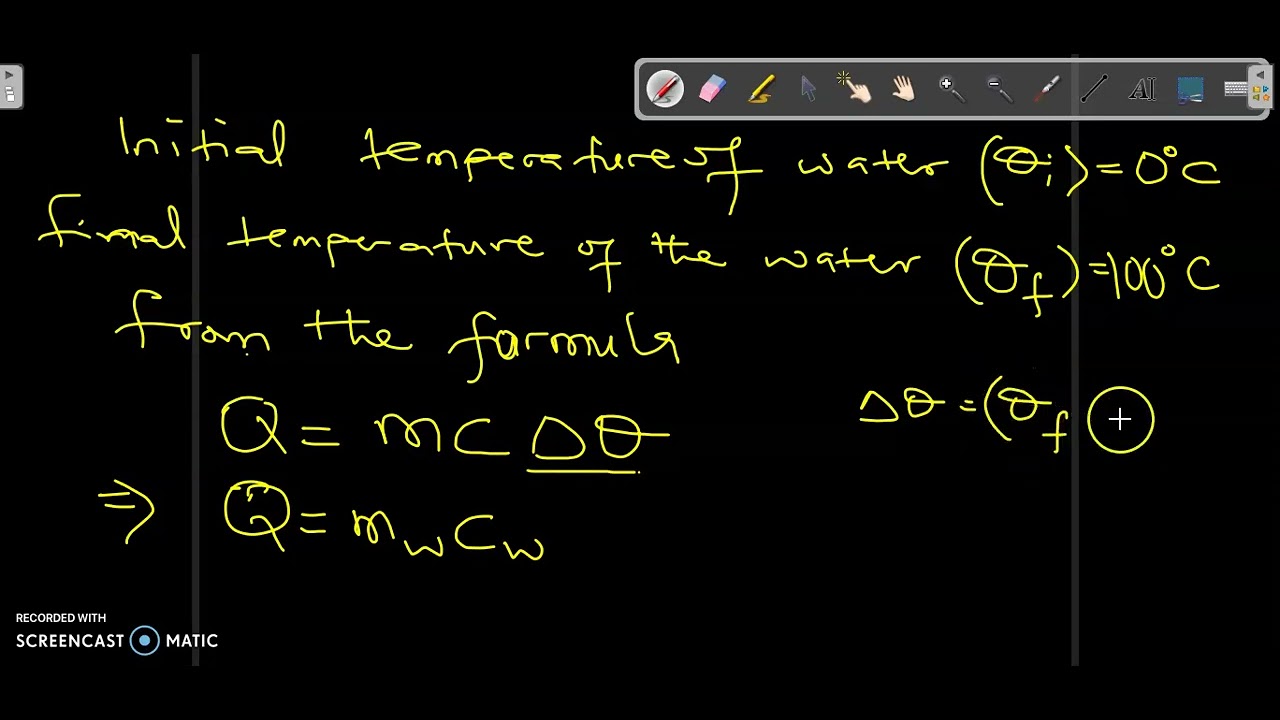 Initial temperature of water (θi) = 0°C
final temperature of the water (θf) = 100°C
from the formula
Q = mc Δθ
Δθ = (θf
⇒ Q = mw cw
RECORDED WITH
SCREENCAST MATIC
AI